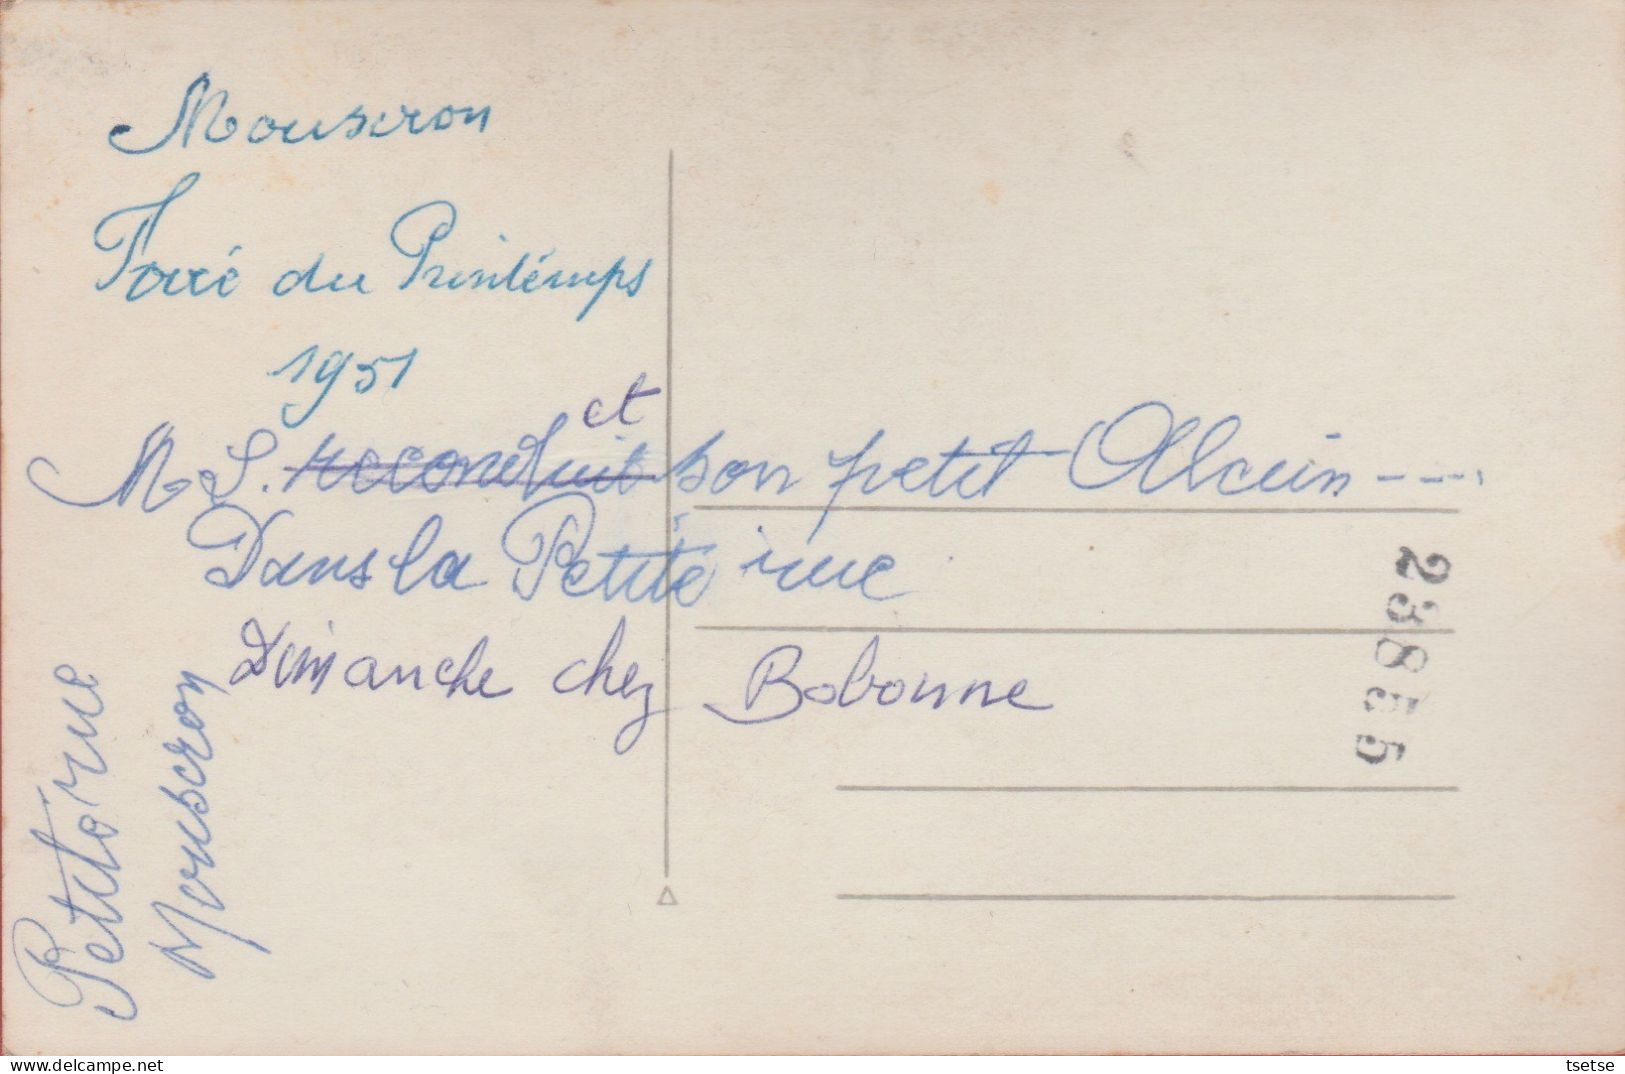 Mouscron
Foire du Printemps
1951
et
M S. reconduit son petit Alcuin ----
Dans la Petite rue
Dimanche chez Bobonne
Petite rue
Mouscron
23855
delcampe.net
tsetse